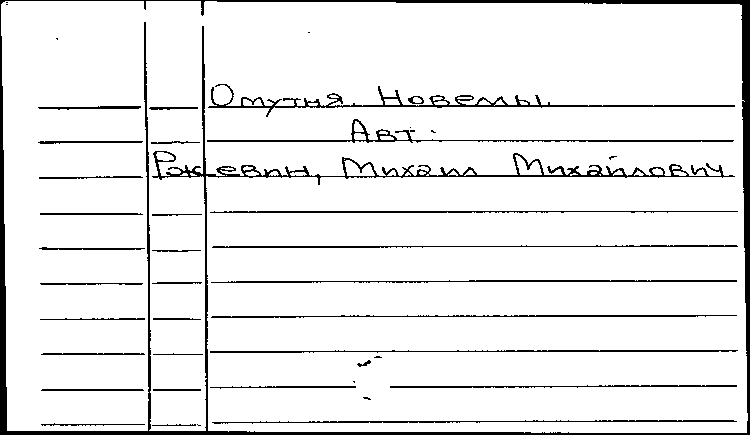 Омутня. Новеллы.
Авт.:
Ржевин, Михаил Михайлович